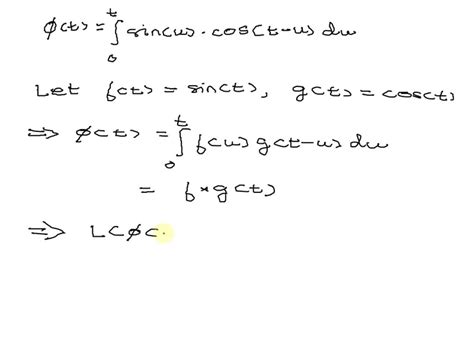 φ(t) = ∫₀ᵗ sin(u) · cos(t-u) du
Let f(t) = sin(t), g(t) = cos(t)
⇒ φ(t) = ∫₀ᵗ f(u) g(t-u) du
= f * g(t)
⇒ L(φ(